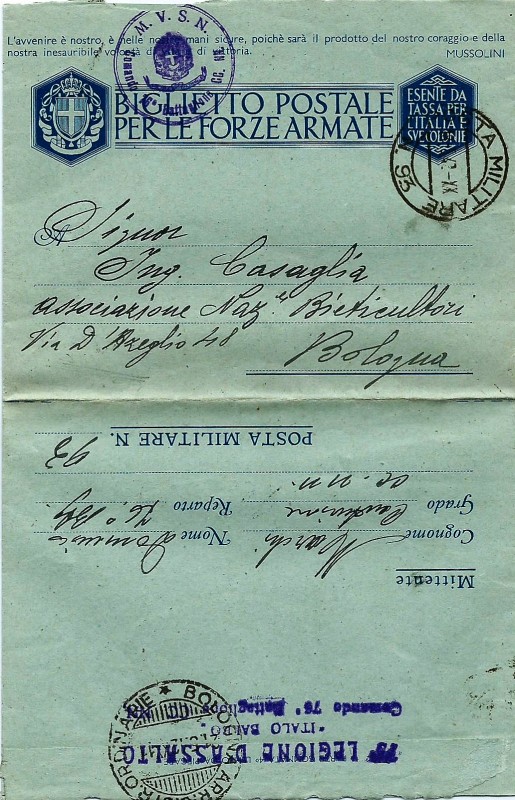 L'avvenire è nostro, è nelle nostre mani sicure, poichè sarà il prodotto del nostro coraggio e della
nostra inesauribile volontà di vita e di vittoria.
MUSSOLINI
M. V. S. N.
Comando 76° Battaglione CC. NN.
BIGLIETTO POSTALE
PER LE FORZE ARMATE
ESENTE DA
TASSA PER
L'ITALIA E
SUE COLONIE
POSTA MILITARE
93
XX
A Signor
Ing. Casaglia
Associazione Naz.le Bieticultori
Via D'Azeglio 48
Bologna
Mittente
Cognome March Nome
Grado Reparto 76° Btg
cc. nn.
POSTA MILITARE N. 93
LEGIONE D'ASSALTO
"ITALO BALBO"
Comando 76° Battaglione CC. NN.
BOLOGNA